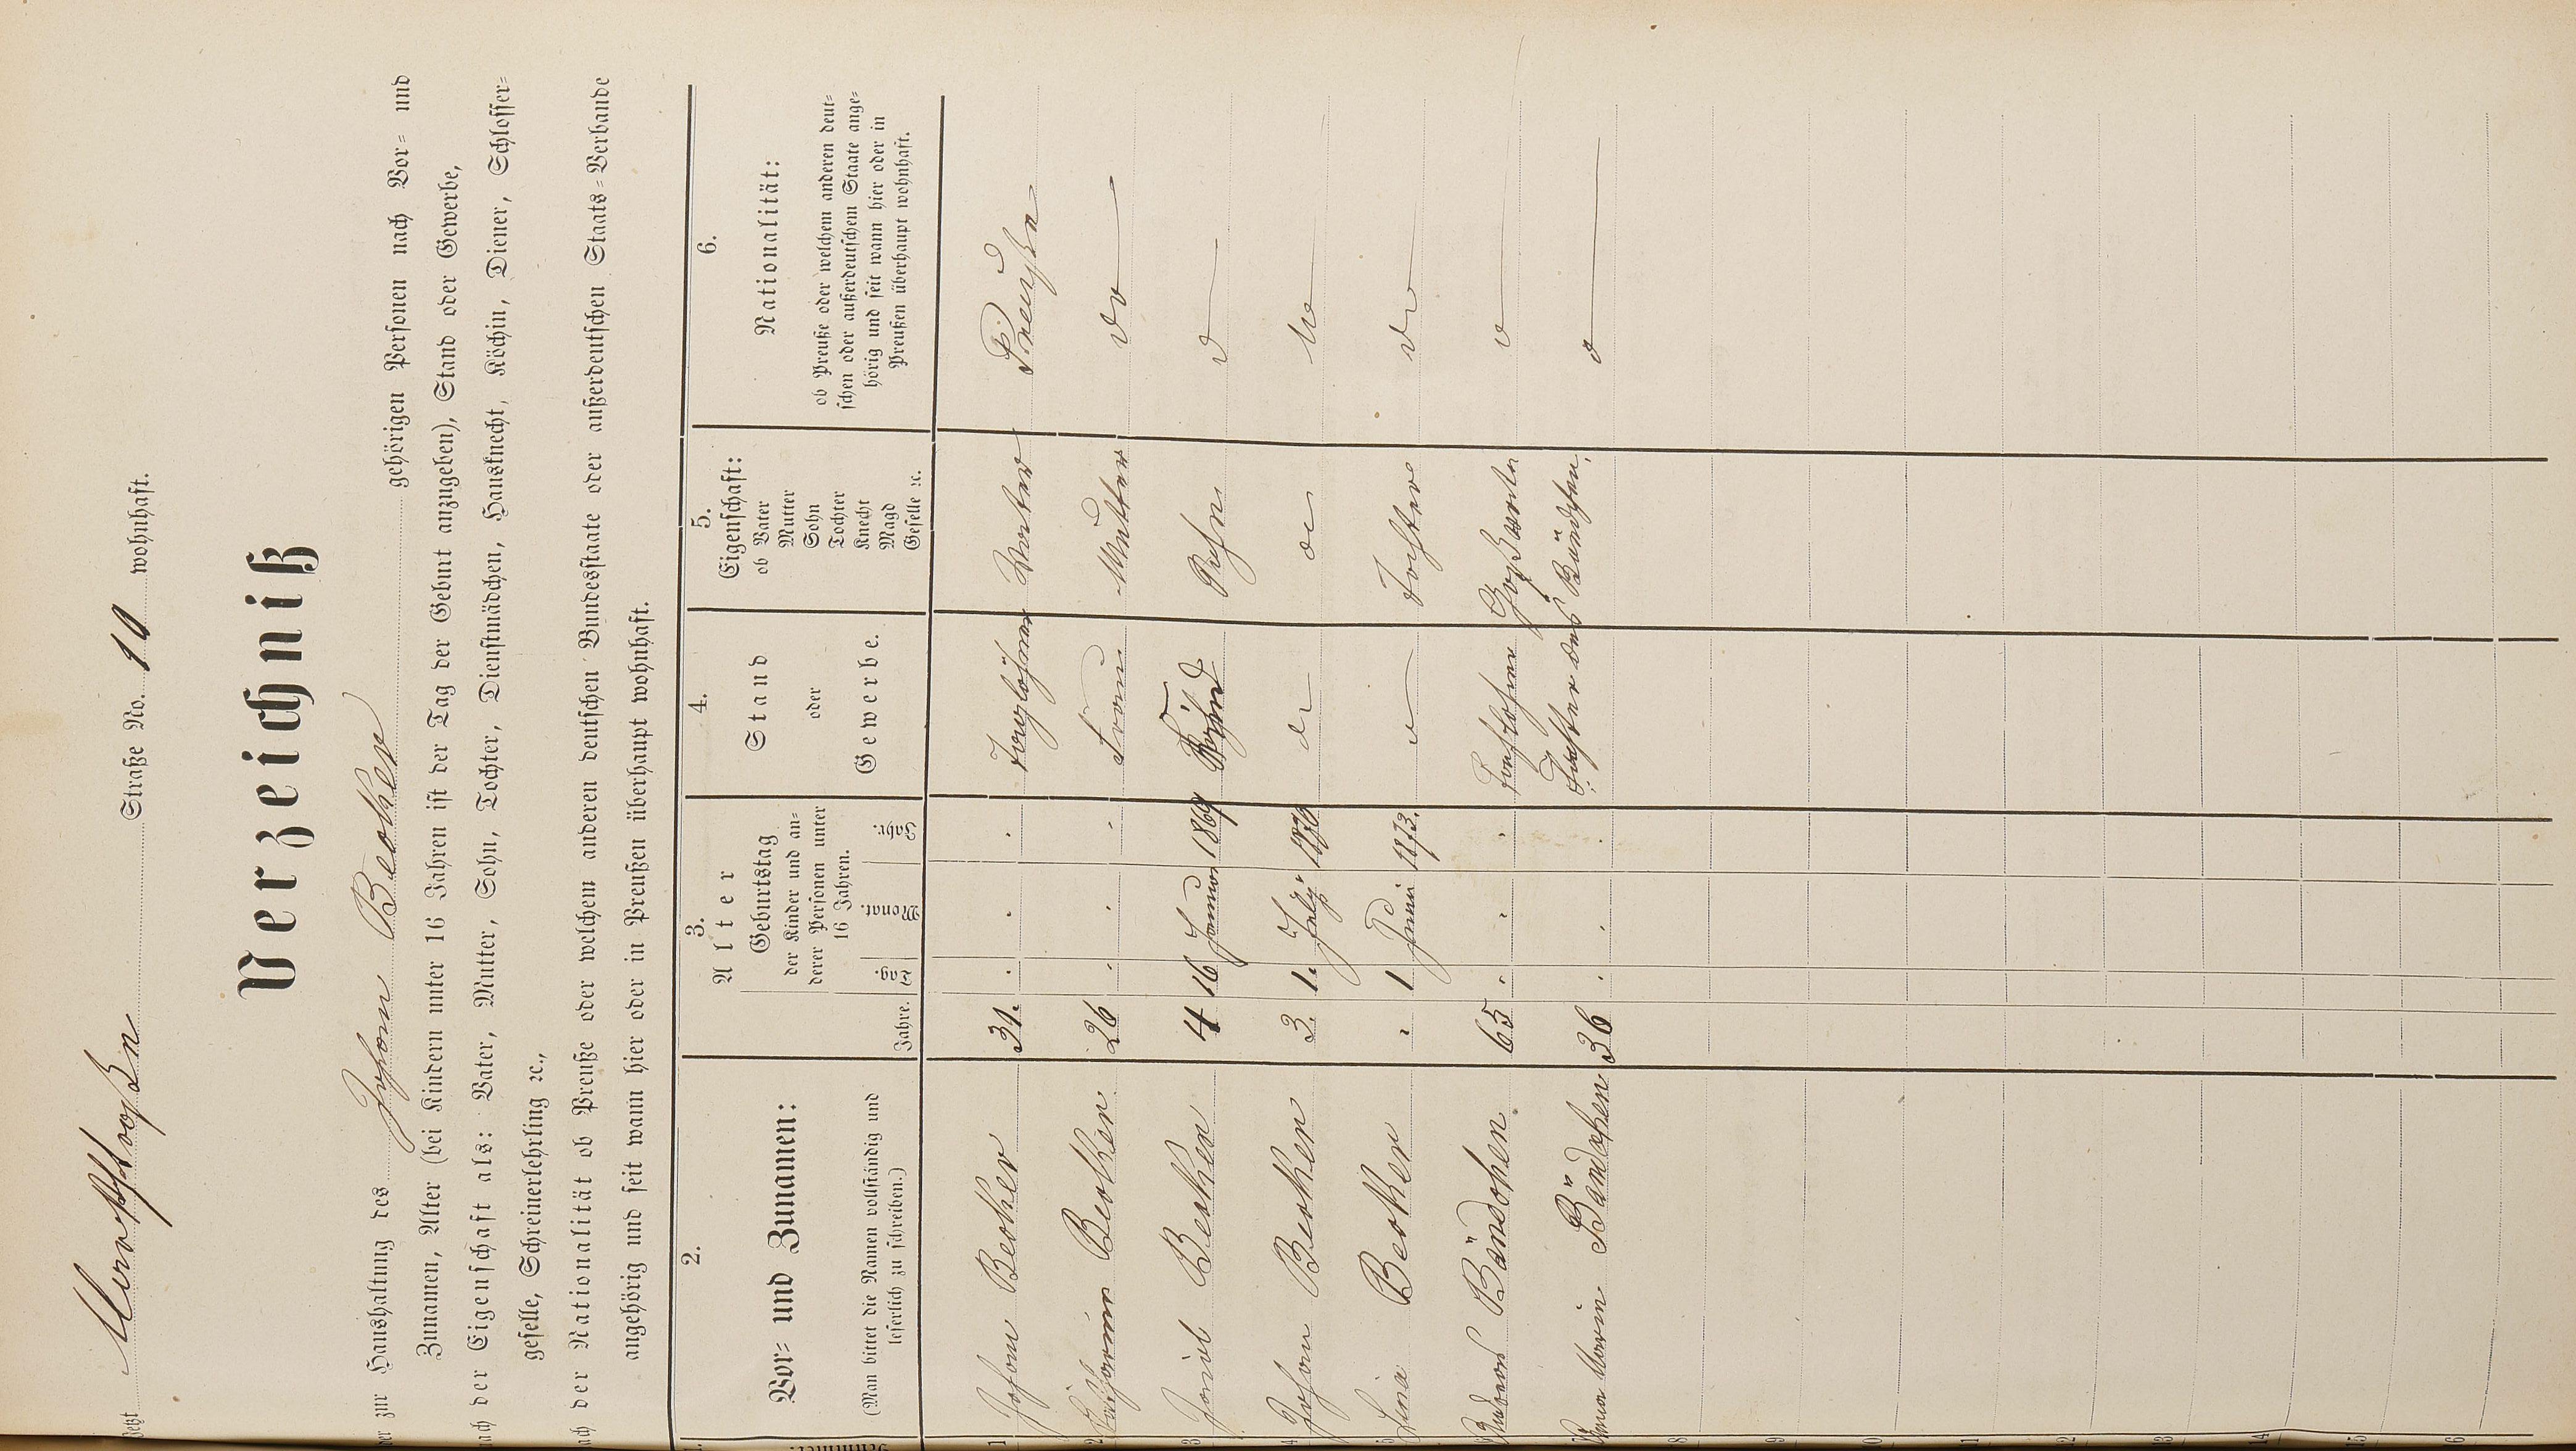 Jetzt Marktstraße Straße No. 10 wohnhaft.
Verzeichniß
der zur Haushaltung des Johan Becker gehörigen Personen nach Vor- und
Zunamen, Alter (bei Kindern unter 16 Jahren ist der Tag der Geburt anzugeben), Stand oder Gewerbe,
nach der Eigenschaft als: Vater, Mutter, Sohn, Tochter, Dienstmädchen, Hausknecht, Köchin, Diener, Schlosser-
geselle, Schreinerlehrling ꝛc.,
nach der Nationalität ob Preuße oder welchem anderen deutschen Bundesstaate oder außerdeutschen Staats-Verbande
angehörig und seit wann hier oder in Preußen überhaupt wohnhaft.
2. 3. 4. 5. 6.
Vor- und Zunamen:
(Man bittet die Namen vollständig und
leserlich zu schreiben.)
Alter
Jahre.
Geburtstag
der Kinder und an-
derer Personen unter
16 Jahren.
Tag Monat. Jahr.
Stand
oder
Gewerbe.
Eigenschaft:
ob Vater
Mutter
Sohn
Tochter
Knecht
Magd
Geselle ꝛc.
Nationalität:
ob Preuße oder welchem anderen deut-
schen oder außerdeutschem Staate ange-
hörig und seit wann hier oder in
Preußen überhaupt wohnhaft.
1 Johan Becker 31. Taglöhner Vater Preußen
2 Becker 26 Frau Mutter do
3 Jacob Becker 4 16 Januar 1869 Kind Sohn d
4 Johan Becker 3. 1. July 1870 do do do
5 Lina Becker 1 Juni 1873. d Tochter do
6 Bändchen 65 d
7 Maria Bändchen 36 Tochter des Bändchen. d
8
9
10
11
12
13
14
15
16